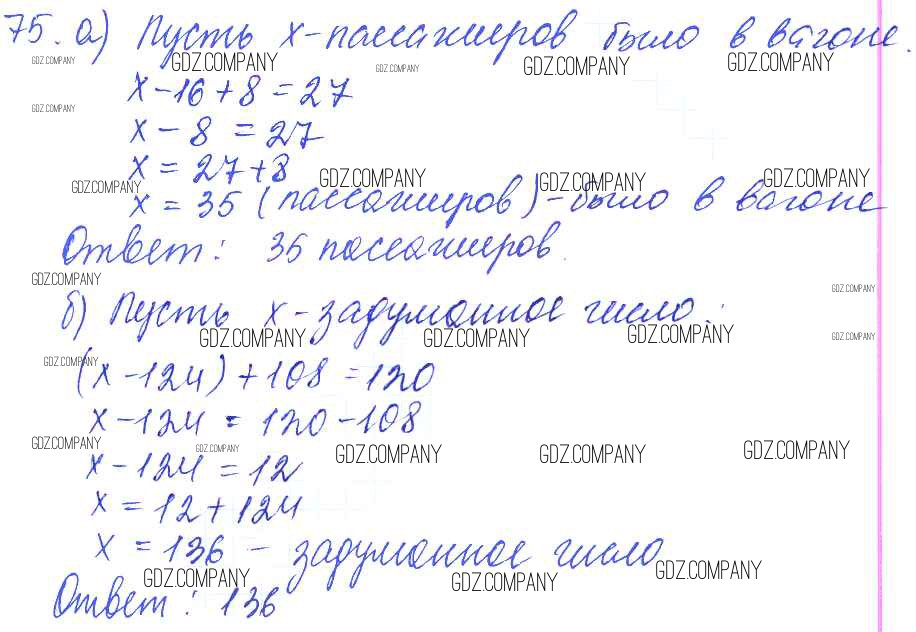 75. а) Пусть х-пассажиров было в вагоне.
GDZ.COMPANY GDZ.COMPANY GDZ.COMPANY GDZ.COMPANY GDZ.COMPANY
х-16+8=27
GDZ.COMPANY
х-8=27
х=27+8
GDZ.COMPANY GDZ.COMPANY GDZ.COMPANY GDZ.COMPANY
х=35 (пассажиров)-было в вагоне
Ответ: 35 пассажиров.
GDZ.COMPANY GDZ.COMPANY
б) Пусть х-задуманное число.
GDZ.COMPANY GDZ.COMPANY GDZ.COMPANY GDZ.COMPANY
GDZ.COMPANY
(х-124)+108=120
х-124=120-108
GDZ.COMPANY GDZ.COMPANY GDZ.COMPANY GDZ.COMPANY GDZ.COMPANY
х-124=12
х=12+124
х=136 - задуманное число
GDZ.COMPANY GDZ.COMPANY GDZ.COMPANY
Ответ: 136